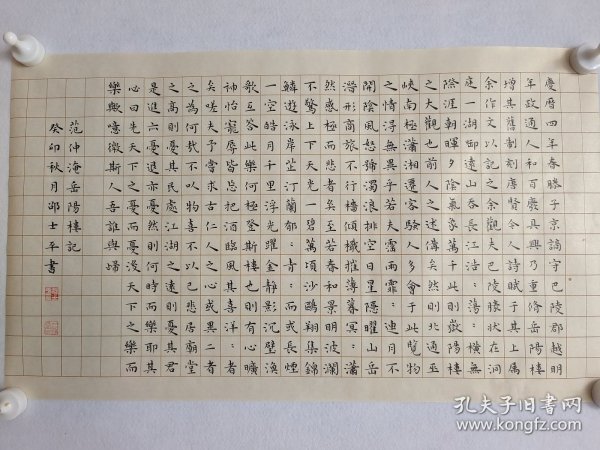 慶曆四年春滕子京謫守巴陵郡越明
年政通人和百廢具興乃重修岳陽樓
增其舊制刻唐賢今人詩賦于其上屬
余作文以記之余觀夫巴陵勝狀在洞
庭一湖銜遠山吞長江浩:蕩:橫無
際涯朝暉夕陰氣象萬千此則嶽陽樓
之大觀也前人之述備矣然則北通巫
峽南極瀟湘遷客騷人多會于此覽物
之情得無異乎若夫霪雨霏:連月不
開陰風怒號濁浪排空日星隱曜山岳
潛形商旅不行檣傾楫摧薄暮冥:瀟
然感極而悲者矣至若春和景明波瀾
不驚上下天光一碧萬頃沙鷗翔集錦
鱗遊泳岸芷汀蘭郁:青:而或長煙
一空皓月千里浮光躍金靜影沉璧漁
歌互答此樂何極登斯樓也則有心曠
神怡寵辱皆忘把酒臨風其喜洋:者
矣嗟夫予嘗求古仁人之心或異二者
之為何哉不以物喜不以己悲居廟堂
之高則憂其民處江湖之遠則憂其君
是進亦憂退亦憂然則何時而樂耶其
必曰先天下之憂而憂後天下之樂而
樂歟噫微斯人吾誰與歸
范仲淹岳陽樓記
癸卯秋月邵士平書
孔夫子旧书网
www.kongfz.com